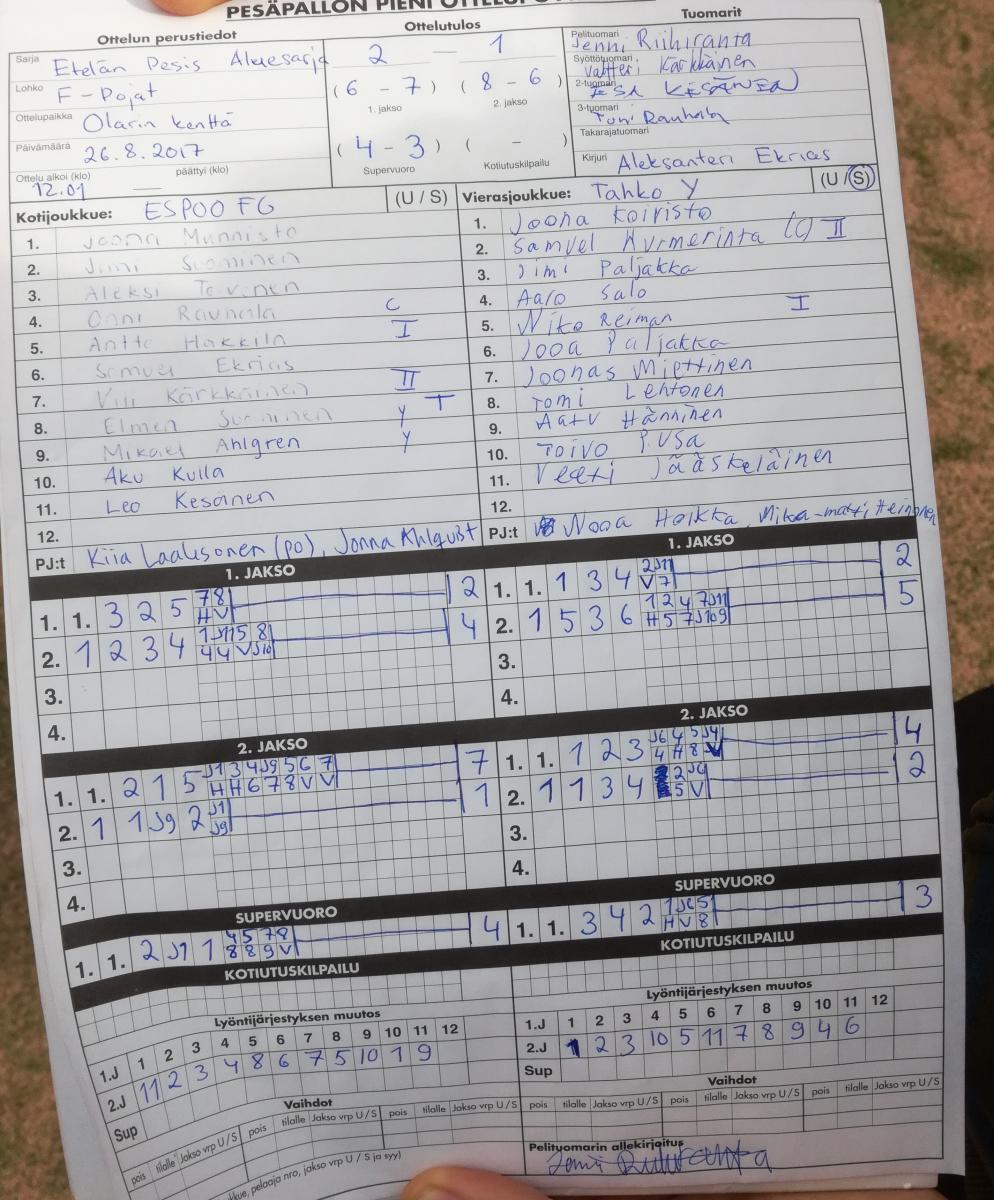 PESÄPALLON PIENI
Ottelun perustiedot
Ottelutulos
Tuomarit
Sarja Etelän Pesis Aluesarja
2 — 1
Pelituomari Jenni Riihiranta
Lohko F-Pojat
(6 - 7) (8 - 6)
1. jakso 2. jakso
Syöttötuomari Valtteri Kärkkäinen
2-tuomari ESA KESÄNEN
Ottelupaikka Olarin kenttä
3-tuomari Toni Rauhala
Takarajatuomari
Päivämäärä 26.8.2017
(4 - 3) ( - )
Supervuoro Kotiutuskilpailu
Kirjuri Aleksanteri Ekrias
Ottelu alkoi (klo) 12.01 — päättyi (klo)
Kotijoukkue: ESPOO FG (U / S)
1. Joona Munnisto
2. Jimi Suominen
3. Aleksi Toivonen
4. Onni Rauhala C
5. Antto Hakkila I
6. Samuel Ekrias
7. Vili Kärkkäinen II
8. Elmeri Suominen Y T
9. Mikael Ahlgren Y
10. Aku Kulla
11. Leo Kesänen
12.
PJ:t Kiia Laaksonen (PO), Jonna Ahlqvist
Vierasjoukkue: Tahko Y (U / S)
1. Joona Koivisto
2. Samuel Nurmerinta (C) II
3. Jimi Paljakka
4. Aaro Salo
5. Niko Reiman I
6. Jooa Paljakka
7. Joonas Miettinen
8. Tomi Lehtonen
9. Aatu Hänninen
10. Toivo Pusa
11. Veeti Jääskeläinen
12.
PJ:t Nooa Hoikka, Mika-matti Heinonen
1. JAKSO
1. 1. 3 2 5 7 8 2
H V
2. 1 2 3 4 1 J11 5 8 4
4 4 V J10
3.
4.
1. JAKSO
1. 1. 1 3 4 2 J11 2
V 7
2. 1 5 3 6 1 2 4 7 J11 5
H 5 7 J10 9
3.
4.
2. JAKSO
1. 1. 2 1 5 J1 3 4 J9 5 6 7 7
H H 6 7 8 V V
2. 1 1 J9 2 J1 1
J9
3.
4.
2. JAKSO
1. 1. 1 2 3 J6 4 5 J4 4
4 H 8 V
2. 1 1 3 4 2 J6 2
5 V
3.
4.
SUPERVUORO
1. 1. 2 J1 1 4 5 7 8 4
8 8 9 V
KOTIUTUSKILPAILU
SUPERVUORO
1. 1. 3 4 2 1 J6 5 3
H V 8
KOTIUTUSKILPAILU
Lyöntijärjestyksen muutos
1.J 1 2 3 4 5 6 7 8 9 10 11 12
2.J 11 2 3 4 8 6 7 5 10 1 9
Sup
Lyöntijärjestyksen muutos
1.J 1 2 3 4 5 6 7 8 9 10 11 12
2.J 1 2 3 10 5 11 7 8 9 4 6
Sup
Vaihdot
pois tilalle Jakso vrp U / S pois tilalle Jakso vrp U / S pois tilalle Jakso vrp U / S
Vaihdot
pois tilalle Jakso vrp U / S pois tilalle Jakso vrp U / S pois tilalle Jakso vrp U / S
kue, pelaaja nro, jakso vrp U / S ja syy)
Pelituomarin allekirjoitus
Jenni Riihiranta